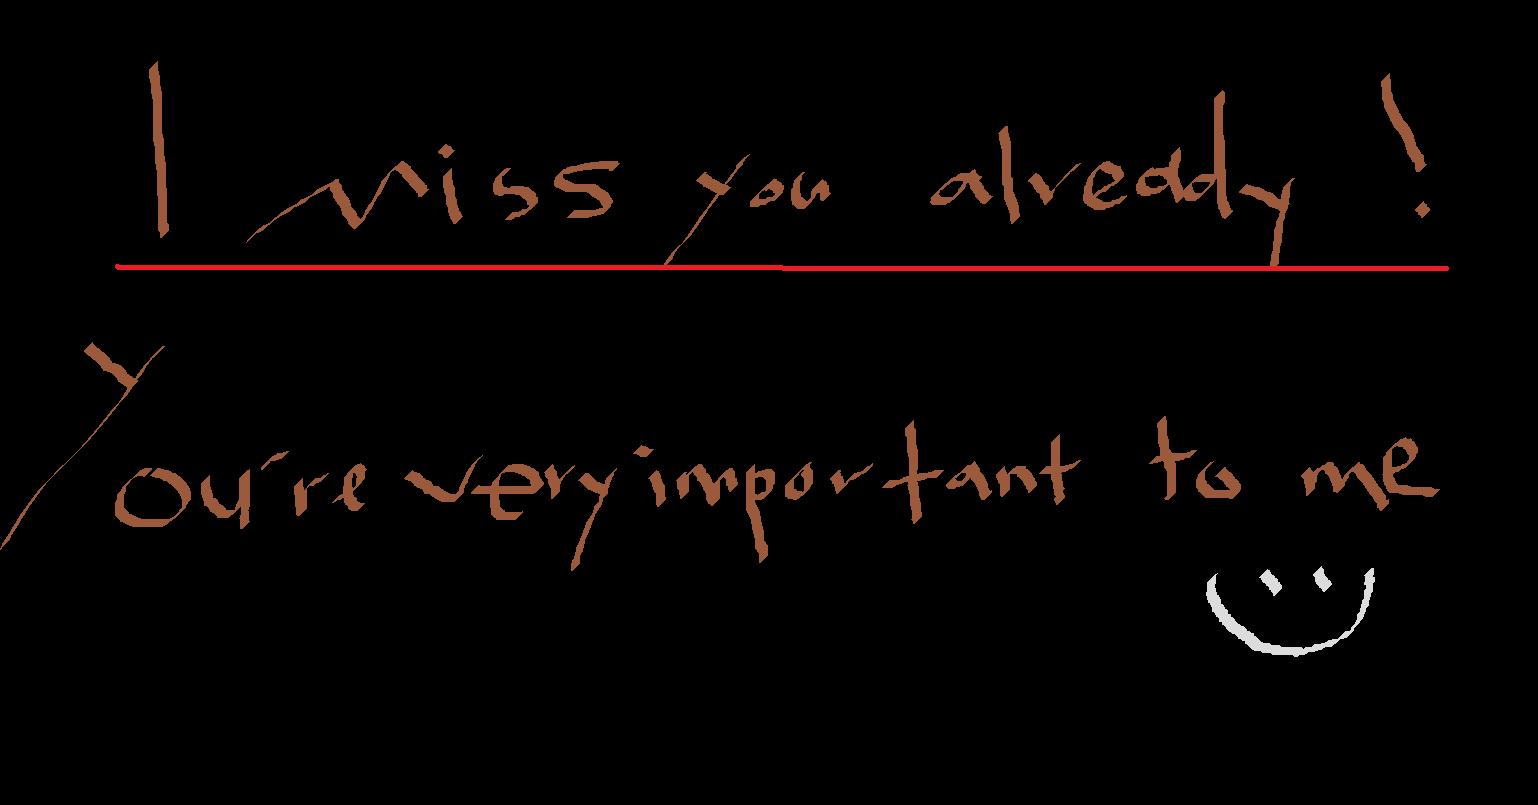 I miss you already !
You're very important to me